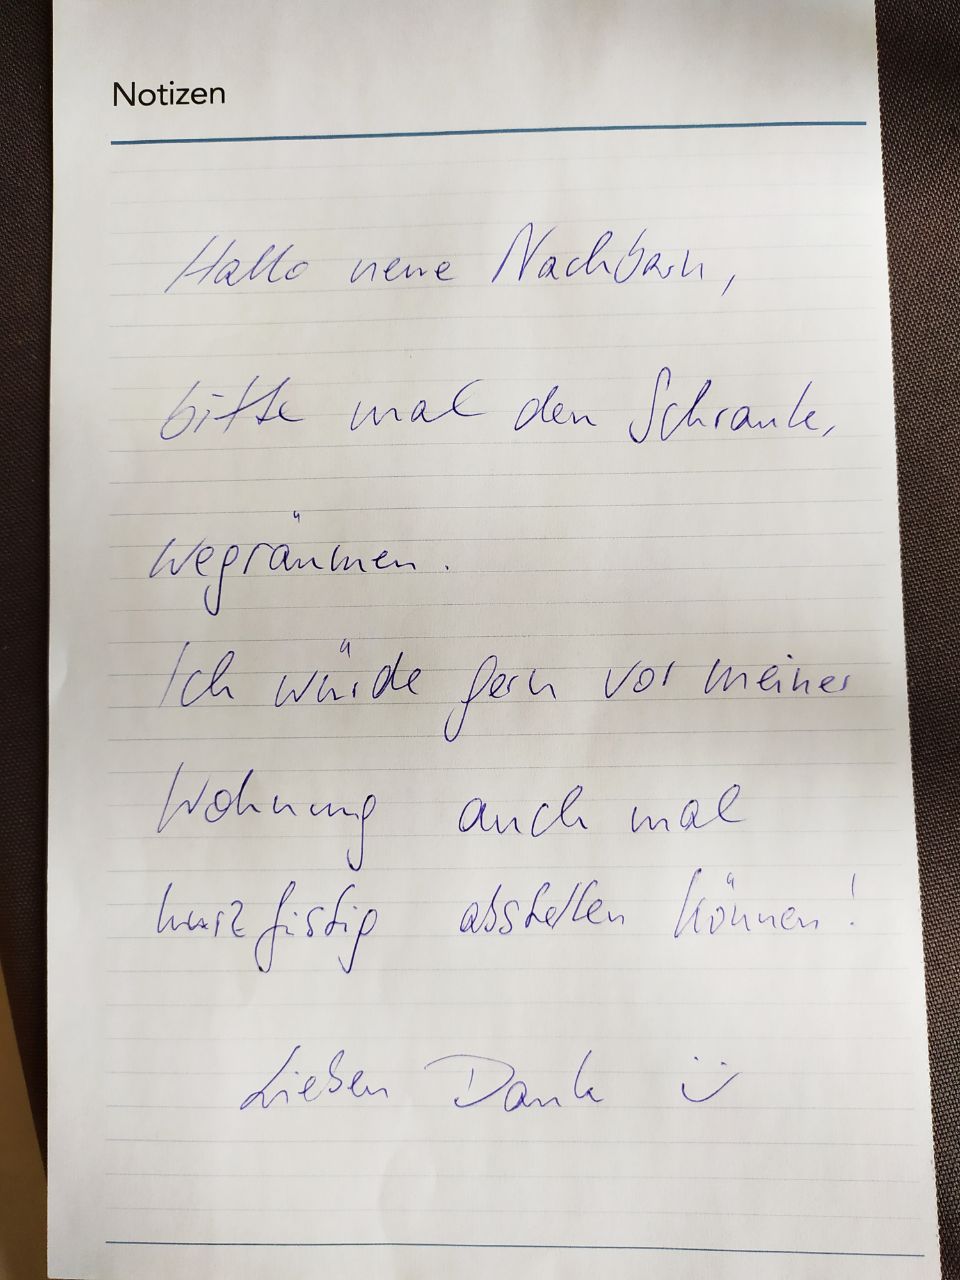 Notizen
Hallo neue Nachbarn,
bitte mal den Schrank,
wegräumen.
Ich würde gern vor meiner
Wohnung auch mal
kurzfistig abstellen können!
Lieben Dank ü